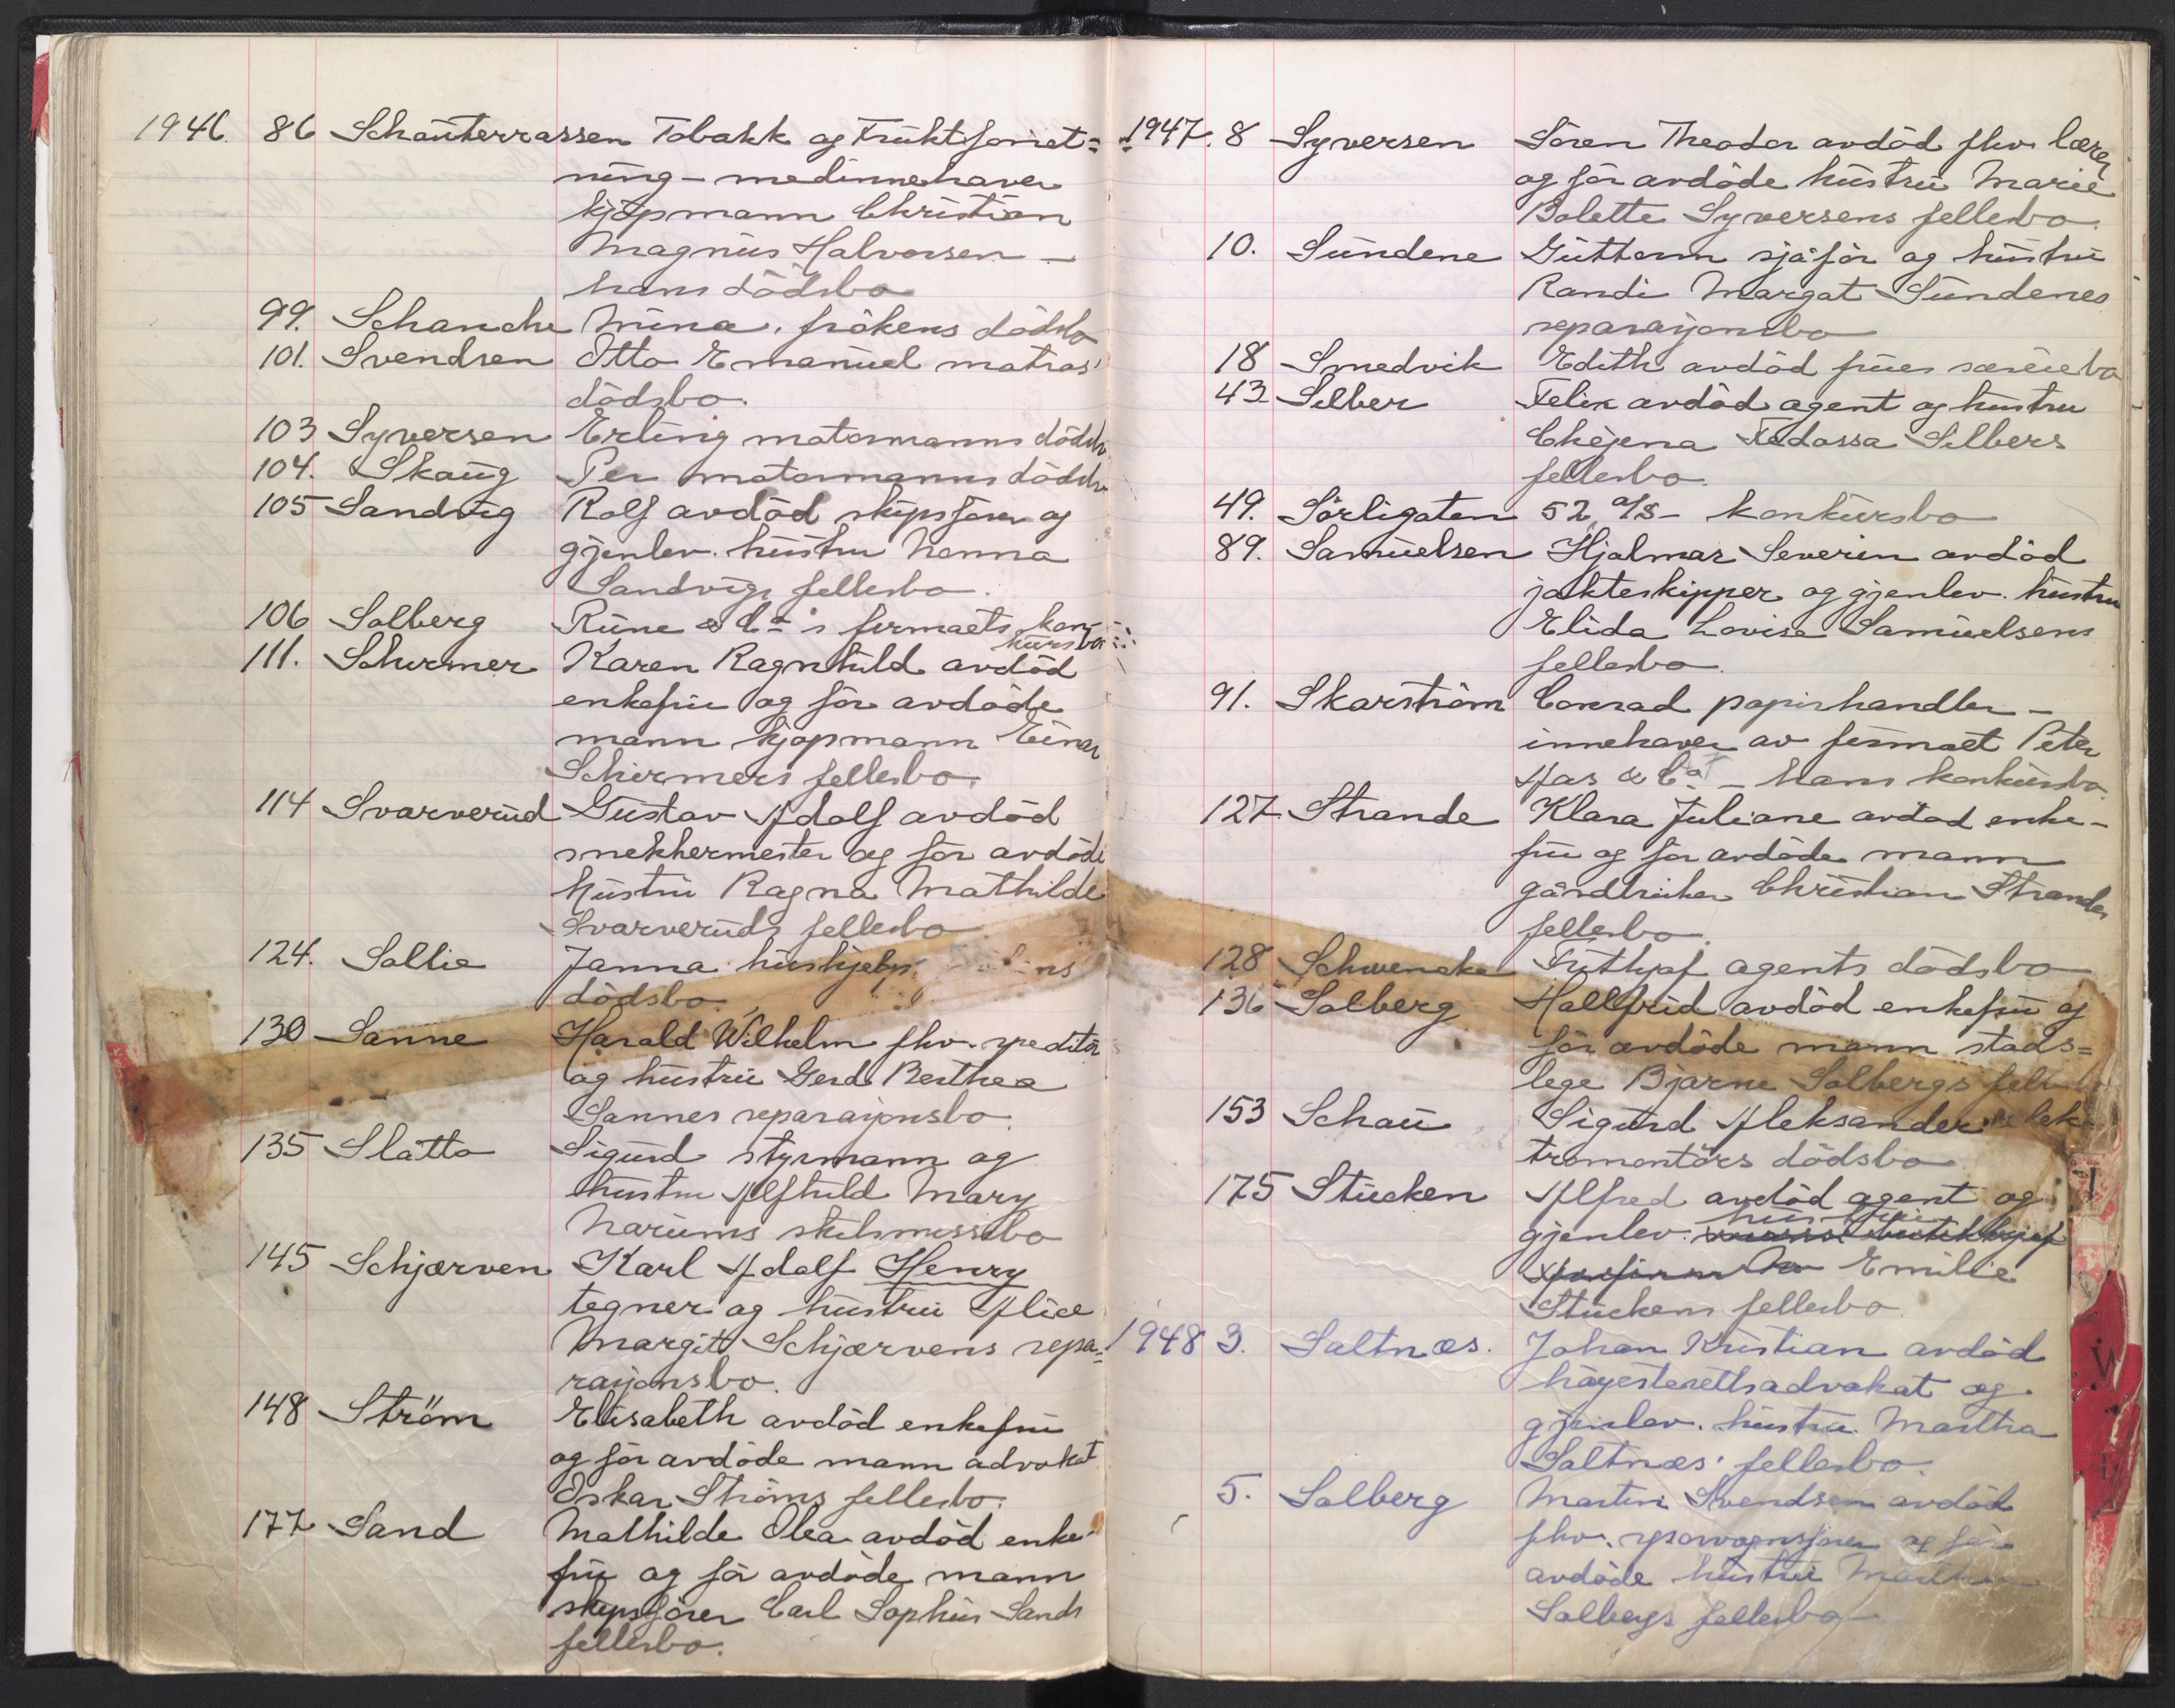 1946. 86 Schauterrassen Tobakk og Fruktforret=
ning - medinnehaver
kjöpmann Christian
Magnus Halvorsen -
hans dödsbo
99. Schanche Mina, frökens dödsbo
101. Svendsen Otto Emanuel matros'
dödsbo.
103 Syversen Erling motormanns dödsbo
104. Skaug Per motormanns dödsbo
105 Sandvig Rolf avdöd skipsförer og
gjenlev. hustru Nanna
Sandvigs fellesbo.
106 Solberg Rune & Co's firmaets kon-
kursbo
111. Schirmer Karen Ragnhild avdöd
enkefru og för avdöde
mann kjöpmann Einar
Schirmers fellesbo.
114 Svarverud Gustav Adolf avdöd
snekkermester og för avdöde
hustru Ragna Mathilde
Svarveruds fellesbo
124. Sollie Janna hushjelp
dödsbo
130 Sanne Harald Wilhelm fhv. speditör
og hustru Gerd Berthea
Sannes separasjonsbo.
135 Slåtto Sigurd styrmann og
hustru Alfhild Mary
Narums skilsmissebo
145 Schjærven Karl Adolf Henry
tegner og hustru Alice
Margitt Schjærvens sepa=
rasjonsbo.
148 Ström Elisabeth avdöd enkefru
og för avdöde mann advokat
Oskar Ströms fellesbo.
177 Sand Mathilde Olea avdöd enke-
fru og för avdöde mann
skipsförer Carl Sophus Sands
fellesbo.
1947. 8 Syversen Sören Theodor avdöd fhv. lærer
og för avdöde hustru Marie
Bolette Syversens fellesbo.
10. Sundene Guttorm sjåför og hustru
Randi Margat Sundenes
separasjonsbo
18 Smedvik Edith avdöd frues særeiebo
43 Silber Felix avdöd agent og hustru
Chejena Fedossa Silbers
fellesbo.
49. Sörligaten 52 A/S - konkursbo
89. Samuelsen Hjalmar Severin avdöd
jakteskipper og gjenlev. hustru
Elida Lovise Samuelsens
fellesbo.
91. Skarström Conrad papirhandler -
innehaver av firmaet Peter
Aas & Co - hans konkursbo.
127 Strande Klara Juliane avdöd enke-
fru og för avdöde mann
gårdbruker Christian Strandes
fellesbo.
128 Schwencke Frithjof agents dödsbo
136 Solberg Hallfrid avdöd enkefru og
för avdöde mann stads=
lege Bjarne Solbergs
153 Schau Sigurd Aleksander elek-
tromontörs dödsbo
175 Stücken Alfred avdöd agent og
hustru
gjenlev.
Emilie
Stückens fellesbo.
1948 3. Saltnæs. Johan Kristian avdöd
höyesterettsadvokat og
gjenlev. hustru Martha
Saltnæs' fellesbo.
5. Solberg Martin Svendsen avdöd
fhv. sporvognsförer og för
avdöde hustru
Solbergs fellesbo